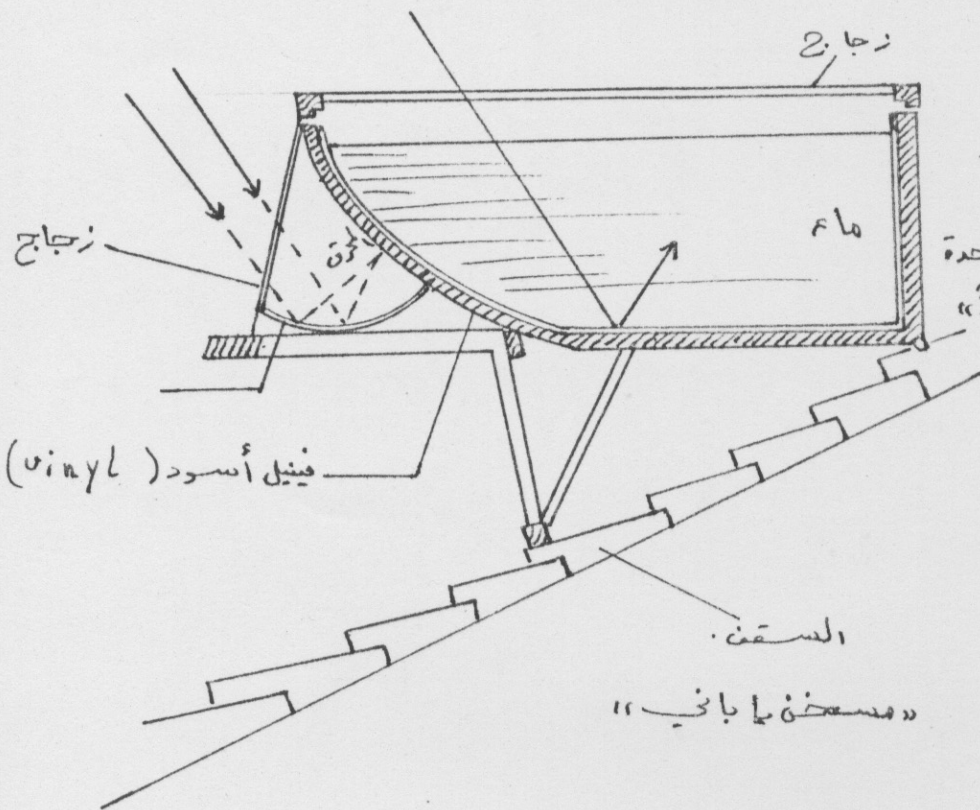 زجاج
ماء
زجاج
فينيل أسود (vinyl)
السقف.
«مسخن ياباني»